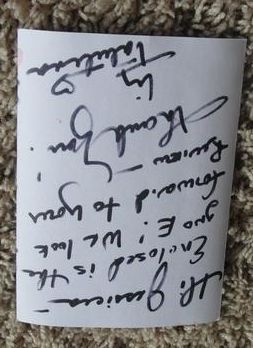 Hi Jessica -
Enclosed is the
Duo E! We look
forward to your
review
Thank You!
Liz ♡
Valentina